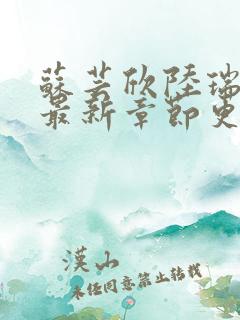 蘇芸欣陸瑞
最新章節免
漢山
未經同意禁止轉載